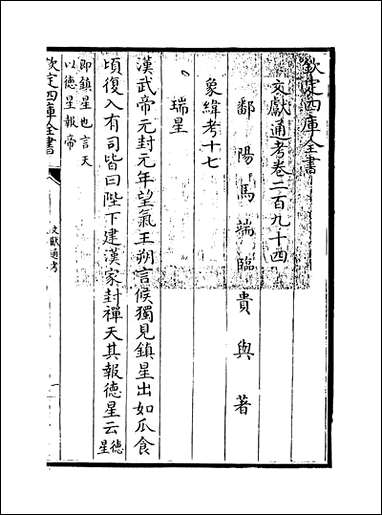 欽定四庫全書
文獻通考卷二百九十四
鄱陽馬端臨貴與著
象緯考十七
瑞星
漢武帝元封元年望氣王朔言候獨見鎮星出如瓜食
頃復入有司皆曰陛下建漢家封禪天其報德星云德星
即鎮星也言天以德星報帝
欽定四庫全書
文獻通考
一